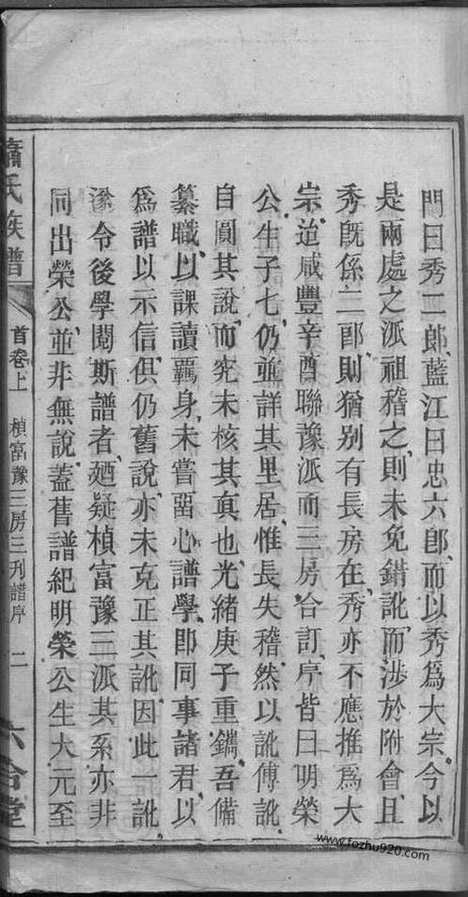 門曰秀二郎藍江曰忠六郎而以秀爲大宗今以
是兩處之派祖稽之則未免錯訛而涉於附會且
秀旣係二郎則猶别有長房在秀亦不應推爲大
宗迨咸豐辛酉聯豫派而三房合訂序皆曰明榮
公生子七仍並詳其里居惟長失稽然以訛傳訛
自圓其說而究未核其眞也光緒庚子重鐫吾備
纂職以課讀羈身未嘗畱心譜學卽同事諸君以
爲譜以示信俱仍舊說亦未克正其訛因此一訛
遂令後學閱斯譜者廻疑楨富豫三派其系亦非
同出榮公並非無說蓋舊譜紀明榮公生大元至
蕭氏族譜
首卷上 楨富豫三房三刋譜序 二
六合堂
www.fozhu920.com